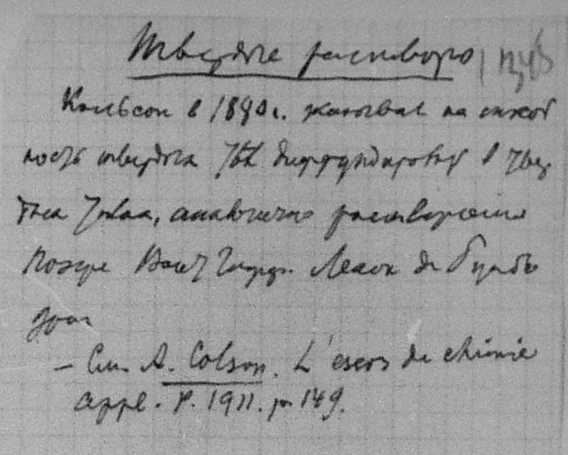 Твердые растворы
Кольсон в 1890 г. указывал на способ
ность твердых тел диффундировать в твер
дых телах, аналогично растворения
Позже Вант Гофф. Лекок де Буабо
дран
– См. A. Colson. L'essor de chimie
appl. P. 1911. p 149.